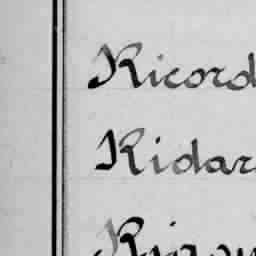 Ricord
Ridar